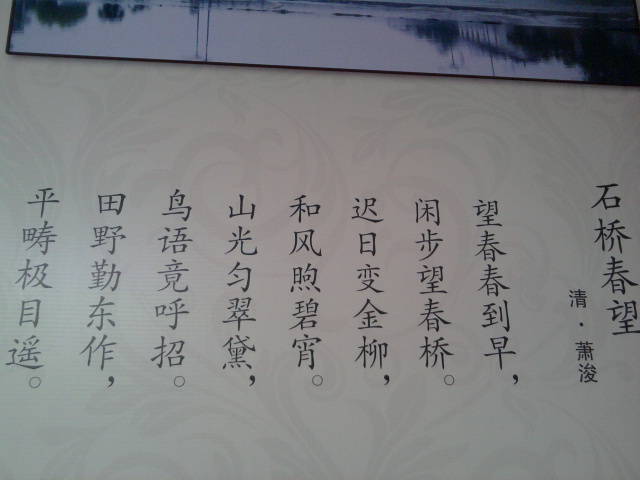 石桥春望
清·萧浚
望春春到早，
闲步望春桥。
迟日变金柳，
和风煦碧宵。
山光匀翠黛，
鸟语竟呼招。
田野勤东作，
平畴极目遥。